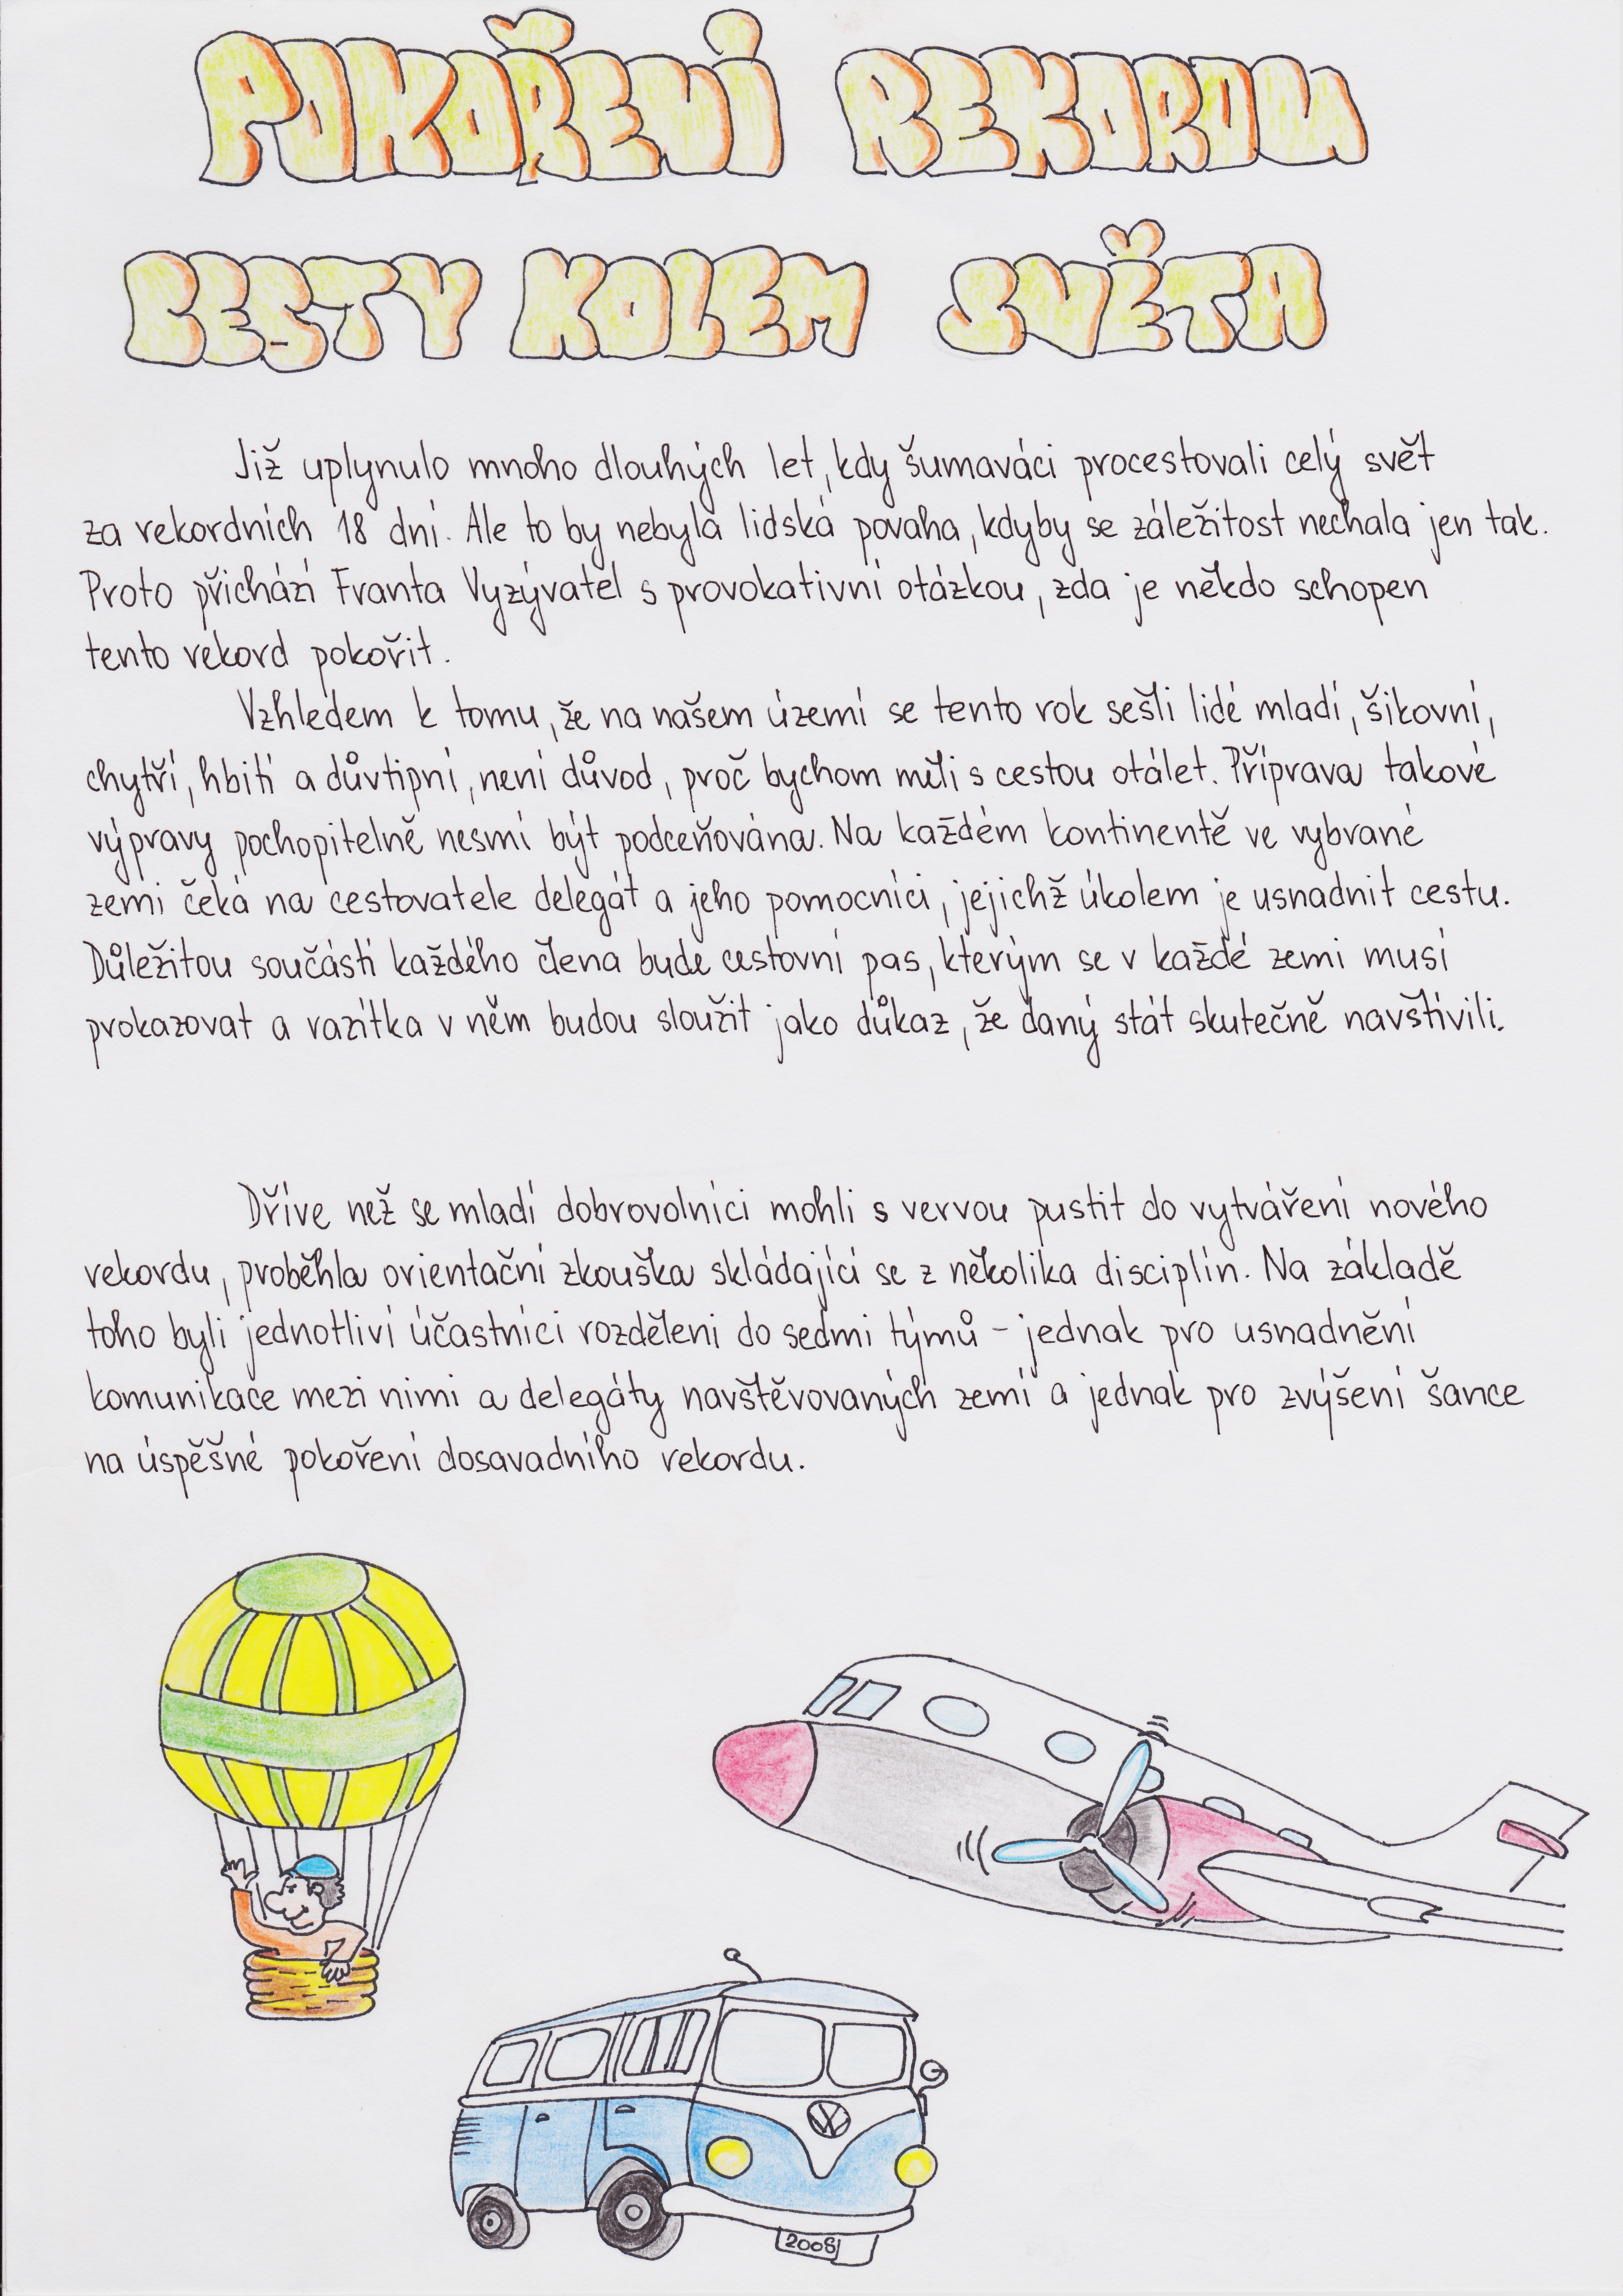 POKOŘENÍ REKORDU
CESTY KOLEM SVĚTA
Již uplynulo mnoho dlouhých let, kdy šumaváci procestovali celý svět
za rekordních 18 dní. Ale to by nebyla lidská povaha, kdyby se záležitost nechala jen tak.
Proto přichází Franta Vyzývatel s provokativní otázkou, zda je někdo schopen
tento rekord pokořit.
Vzhledem k tomu, že na našem území se tento rok sešli lidé mladí, šikovní,
chytří, hbití a důvtipní, není důvod, proč bychom měli s cestou otálet. Příprava takové
výpravy pochopitelně nesmí být podceňována. Na každém kontinentě ve vybrané
zemi čeká na cestovatele delegát a jeho pomocníci, jejichž úkolem je usnadnit cestu.
Důležitou součástí každého člena bude cestovní pas, kterým se v každé zemi musí
prokazovat a razítka v něm budou sloužit jako důkaz, že daný stát skutečně navštívili.
Dříve než se mladí dobrovolníci mohli s vervou pustit do vytváření nového
rekordu, proběhla orientační zkouška skládající se z několika disciplín. Na základě
toho byli jednotliví účastníci rozděleni do sedmi týmů - jednak pro usnadnění
komunikace mezi nimi a delegáty navštěvovaných zemí a jednak pro zvýšení šance
na úspěšné pokoření dosavadního rekordu.
VW
2008